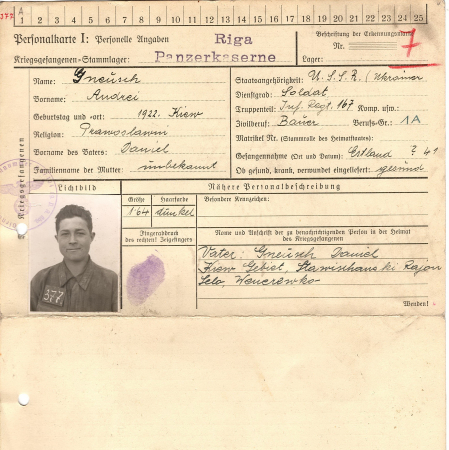 377 A 1 2 3 4 5 6 7 8 9 10 11 12 13 14 15 16 17 18 19 20 21 22 23 24 25
Personalkarte I: Personelle Angaben
Kriegsgefangenen-Stammlager:
Riga
Panzerkaserne
Beschriftung der Erkennungsmarke
Nr. 7
Lager:
Name: Gneusch
Vorname: Andrei
Geburtstag und -ort: 1922. Kiew
Religion: Prawoslawni
Vorname des Vaters: Daniel
Familienname der Mutter: unbekannt
Staatsangehörigkeit: U.S.S.R./Ukrainer
Dienstgrad: Soldat
Truppenteil: Inf. Regt. 167 Komp. usw.:
Zivilberuf: Bauer Berufs-Gr.: 1A
Matrikel Nr. (Stammrolle des Heimatstaates):
Gefangennahme (Ort und Datum): Estland ? 41
Ob gesund, krank, verwundet eingeliefert: gesund
Kriegsgefangenen
Lichtbild
Nähere Personalbeschreibung
Größe
Haarfarbe
164
dunkel
Besondere Kennzeichen:
Fingerabdruck
des rechten! Zeigefingers
Name und Anschrift der zu benachrichtigenden Person in der Heimat
des Kriegsgefangenen
Vater: Gneusch Daniel
Kiew Gebiet, Rajon
Selo
377
Wenden!